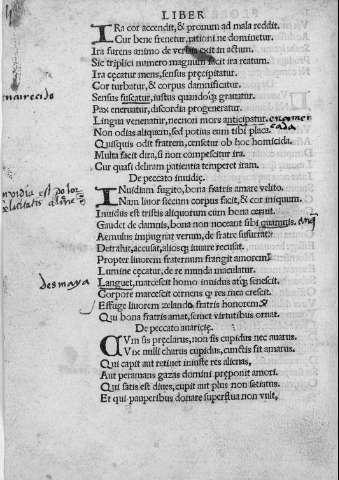 LIBER
IRa cor accendit, & pronum ad mala reddit.
Cur bene frenetur, rationi ne dominetur.
Ira furens animo de verbis exit in actum.
Sic triplici numero magnum facit ira reatum.
Ira cęcatur mens, sensus pręcipitatur.
Cor turbatur, & corpus damnificatur.
Sensus suscatur, iustus quandoq; grauatur.
Pax eneruatur, discordia progeneratur.
Lingua venenatur, necnon mors anticipatur.
Non odias aliquem, sed potius eum tibi placa.
Quisquis odit fratrem, censetur ob hoc homicida.
Multa facit dira, si non compescitur ira.
Cur quasi deliram patientia temperet iram.
De peccato inuidię.
INuidiam fugito, bona fratris amare velito.
Nam liuor siccum corpus facit, & cor iniquum.
Inuidus est tristis aliquorum cum bona cernit.
Gaudet de damnis, bona non noceant sibi quamuis.
Aemulus impugnat verum, de fratre susurrat:
Detrahit, accusat, aliosq; iuuare recusat.
Propter liuorem fraternum frangit amorem
Lumine cęcatur, de re munda maculatur.
Languet, marcescit homo inuidus atq; senescit.
Corpore marcescit cernens q res mea crescit.
Effuge liuorem zelando fratris honorem
Qui bona fratris amat, senict virtutibus ornat.
De peccato auaricię.
CVm sis pręclarus, non sis cupidus nec auarus.
Vix nulli charus cupidus, cunctis sit amarus.
Qui capit aut retinet iniuste res alienas,
Aut peramans gazas domini pręponit amori.
Qui satis est diues, cupit aut plus non satiatus.
Et qui pauperibus donare superflua non vult,
desmaya